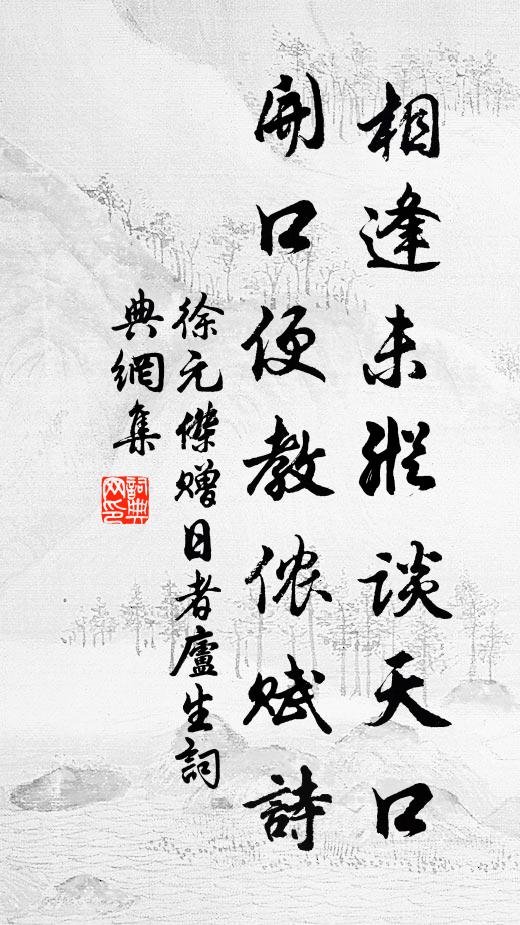 相逢未縱談天口
開口便教儂賦詩
徐元傑贈日者廬生詞
典網集
詞典
网印